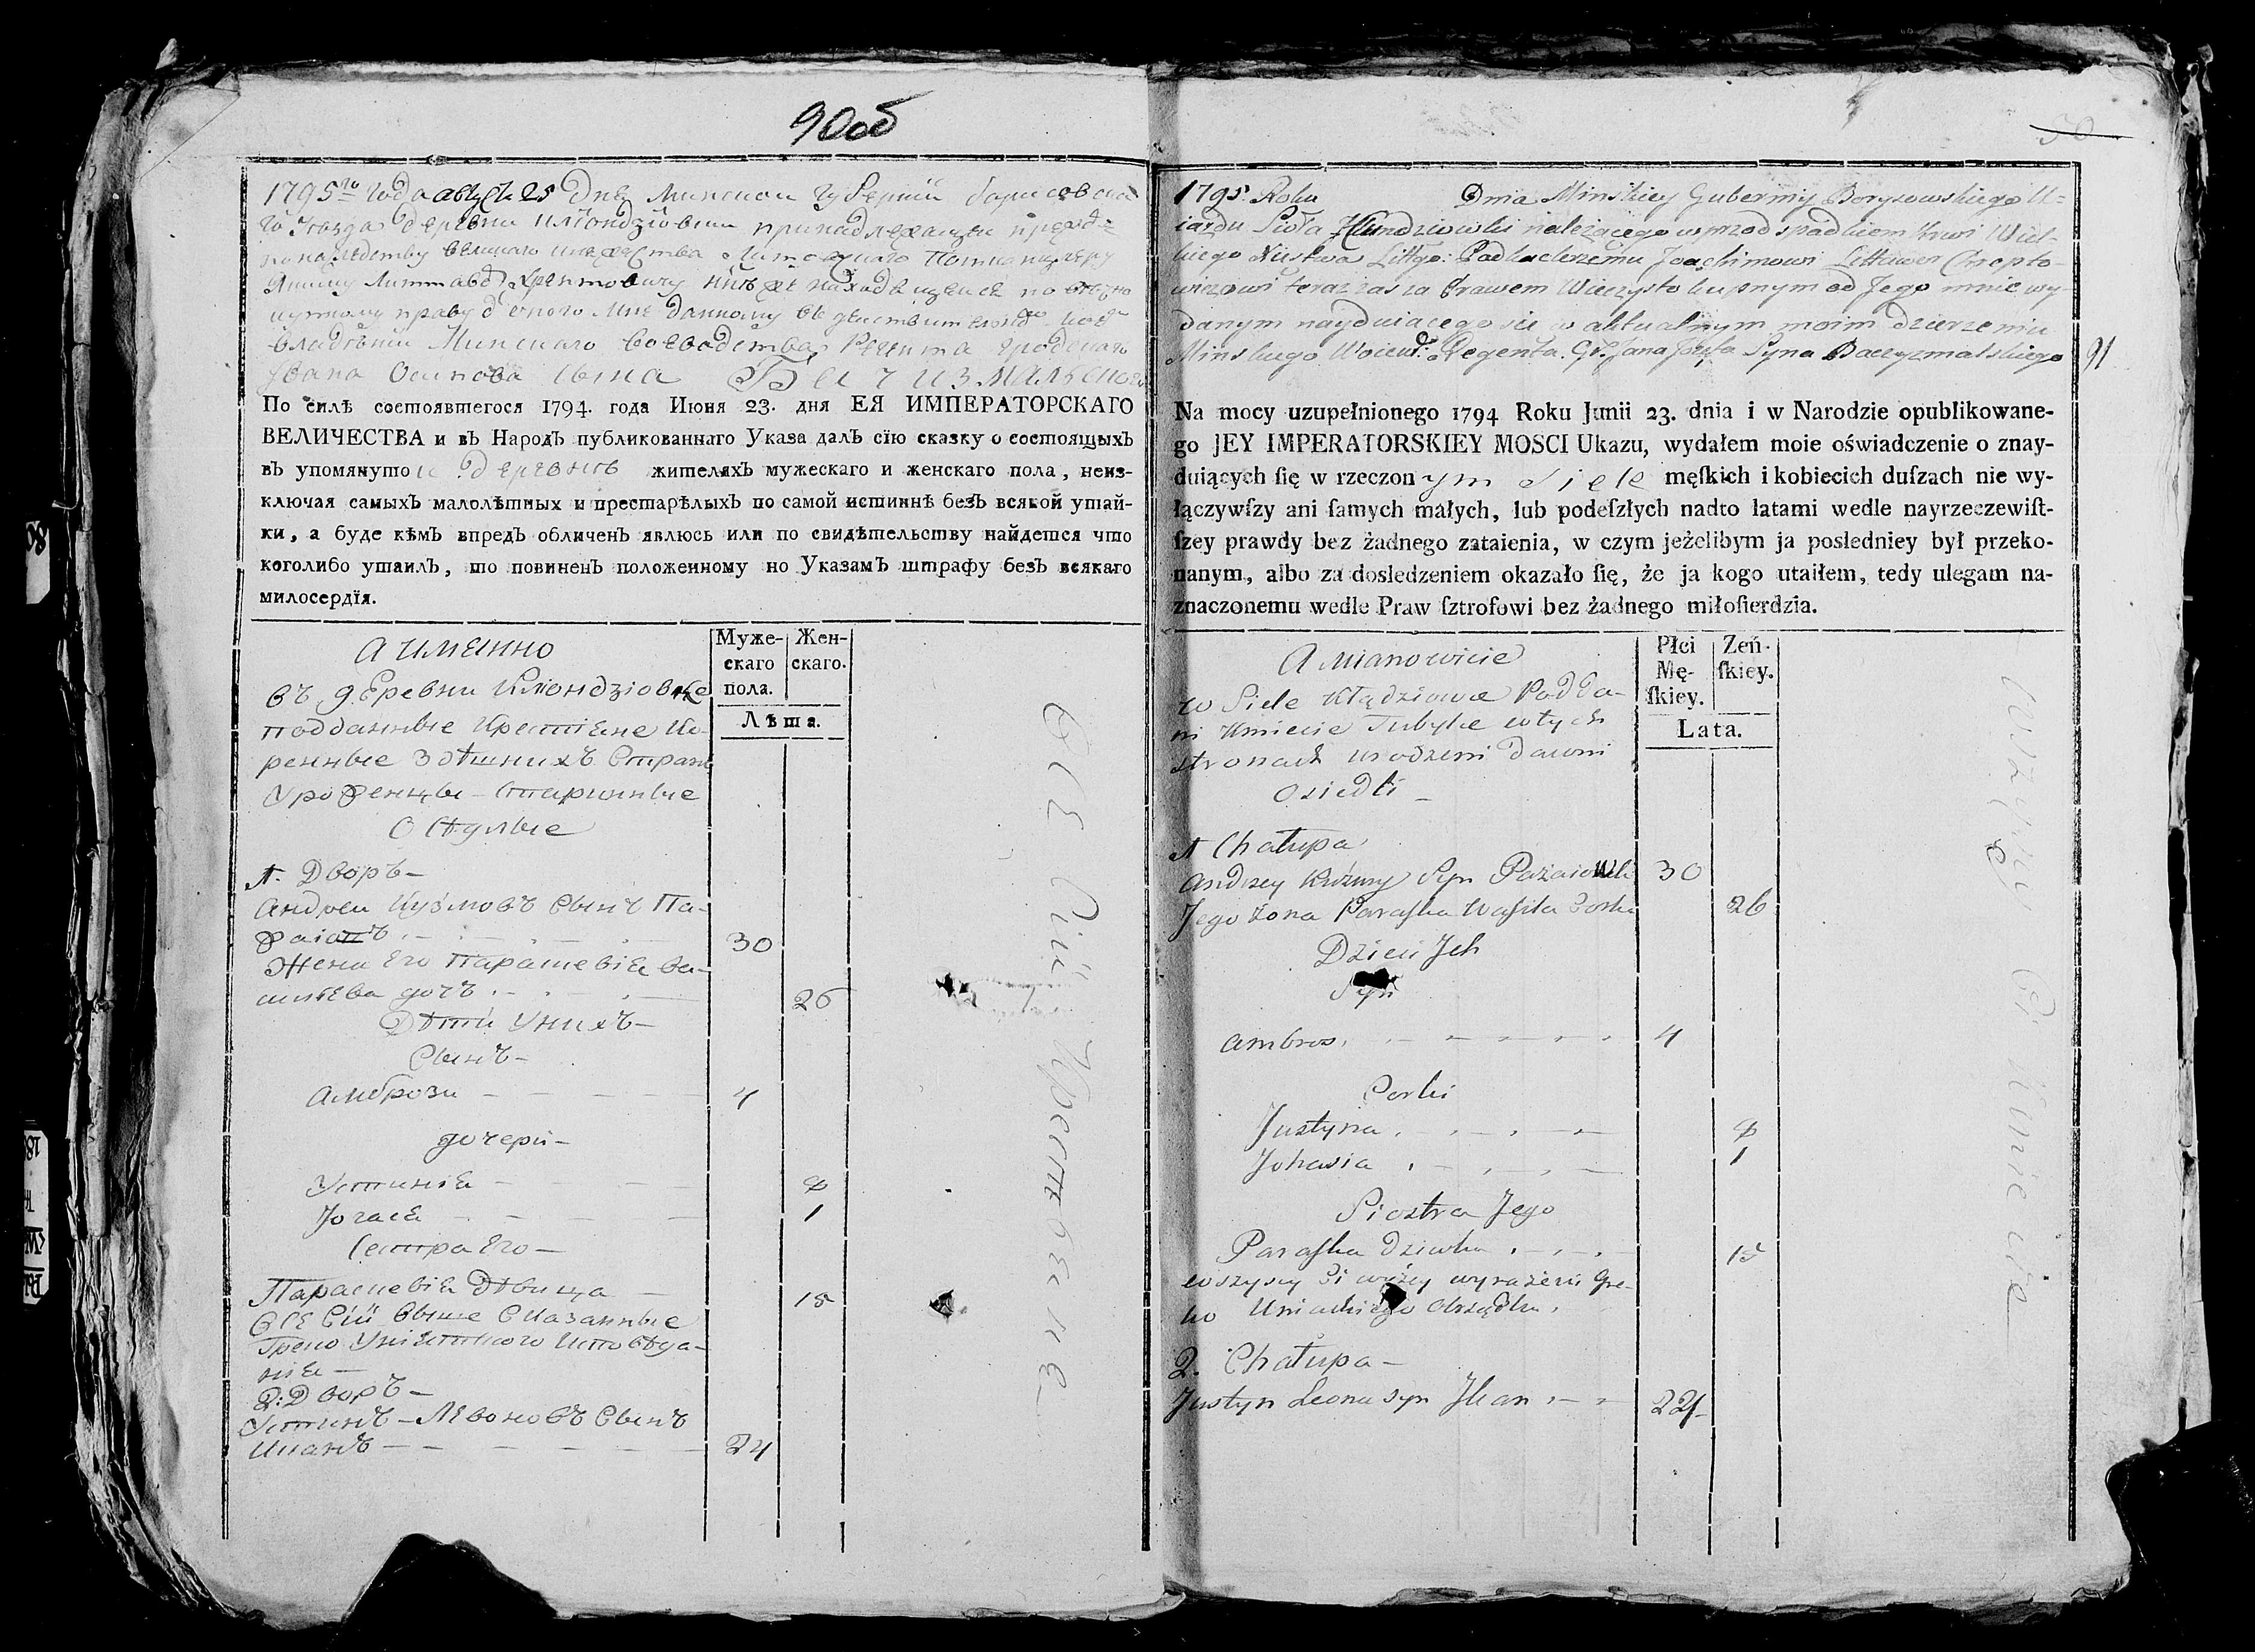 90об
1795го года августа 25 дня Минской губернии Борисовска
го уезда деревни принадлежащей прежде
по наследству великаго княжества Литовскаго
Хрептовичу ныне же находящейся по вечно
купному праву от оного мне данному в действительном моем
владении Минскаго воеводства Регента гродскаго
Ивана Осипова сына Бачизмальскаго
По силѣ состоявшегося 1794. года Июня 23. дня ЕЯ ИМПЕРАТОРСКАГО
ВЕЛИЧЕСТВА и въ Народъ публикованнаго Указа далъ сїю сказку о состоящыхъ
въ упомянутой деревнѣ жителяхъ мужескаго и женскаго пола, неиз-
ключая самыхъ малолѣтных и престарѣлыхъ по самой истиннѣ безъ всякой утай-
ки, а буде кѣмъ впредъ обличенъ явлюсь или по свидѣтельству найдется что
коголибо утаилъ, то повиненъ положенному по Указамъ штрафу безъ всякаго
милосердїя.
А именно
Муже-
скаго
пола.
Жен-
скаго.
Лѣта.
въ деревни
подданные крестiяне ко-
ренные здѣшнихъ стран
уроженцы старинные
осѣдлые
1. Дворъ –
Андреи Кузмовъ сынъ Па-
жаiонъ 30
Жена его Парасковiя Ва-
сильева дочъ 26
Дѣти у нихъ –
Сынъ –
Амбрози – 4
дочери –
Устинiя – 8
Югася – 1
Сестра его –
Парасковiя дѣвица – 15
Все сiи выше сказанные
Греко унiятского исповѣда-
нiя –
2. Дворъ –
Устинъ – Левоновъ сынъ
Иканъ – 24
Все сiи крестьяне
1795 Roku Dnia Minskiey Gubernij Borysowskiego U-
iazdu Sioła należącego wprzod spadkiem krwi Wiel-
kiego Xięstwa Littgo: Podkaclerzemu Joachimowi Littawor Chrepto-
wiczowi teraz zas za Prawem Wieczysto kupnym od Jego mnie wy-
danym nayduiącego się w aktualnym moim dzierzeniu
Minskiego Woiewd: Regenta. Gr. Jana Józefa Syna Baczyzmalskiego
91
Na mocy uzupełnionego 1794 Roku Junii 23. dnia i w Narodzie opublikowane-
go JEY IMPERATORSKIEY MOSCI Ukazu, wydałem moie oświadczenie o znay-
duiących ſię w rzeczonym Siele męſkich i kobiecich duſzach nie wy-
łączywſzy ani ſamych małych, lub podeſzłych nadto latami wedle nayrzeczewiſt-
ſzey prawdy bez żadnego zataienia, w czym jeżelibym ja posledniey był przeko-
nanym, albo za dosledzeniem okazało ſię, że ja kogo utaiłem, tedy ulegam na-
znaczonemu wedle Praw ſztrofowi bez żadnego miłoſierdzia.
A mianowicie
Płci
Mę-
ſkiey.
Zeń-
ſkiey.
Lata.
w Siele Kłądziowce Podda-
ni Kmiecie Tubylce w tych
stronach urodzeni dawni
osiedli –
1 Chałupa
Andrzey Kuźmy Syn 30
Jego żona Paraſka Waſila Corka 26
Dzieci Jch
Syn
Ambros. 4
Corki
Justyna 8
Johasia 1
Siostra Jego
Paraſka dziewka 15
wszyscy Ci wyżey wyrażeni Gre-
ko Uniackiego Obrządku.
2. Chałupa –
Justyn Leona syn Jkan 24
Wszyscy Ci Kmiecie